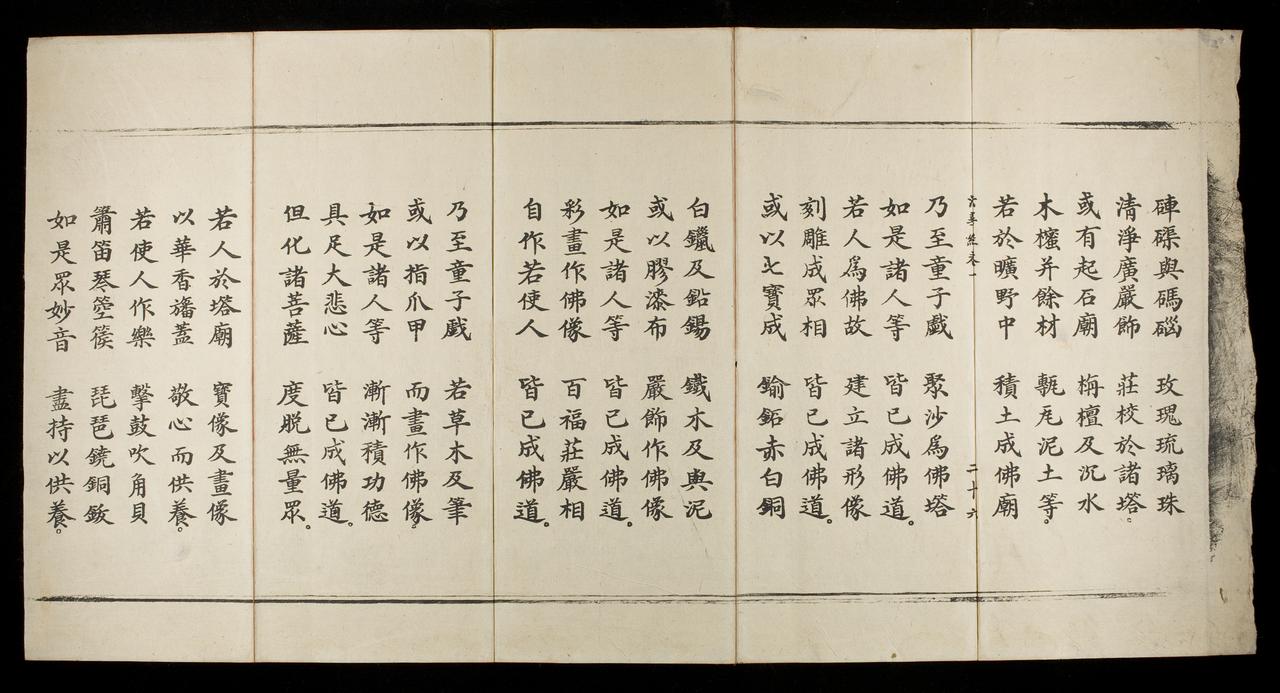 硨磲與碼碯　玫瑰琉璃珠
清淨廣嚴飾　莊校於諸塔。
或有起石廟　栴檀及沉水
木櫁并餘材　甎瓦泥土等。
若於曠野中　積土成佛廟
法華經卷一　二十六
乃至童子戲　聚沙為佛塔
如是諸人等　皆已成佛道。
若人為佛故　建立諸形像
刻雕成眾相　皆已成佛道。
或以七寶成　鍮鉐赤白銅
白鑞及鉛錫　鐵木及與泥
或以膠漆布　嚴飾作佛像
如是諸人等　皆已成佛道。
彩畫作佛像　百福莊嚴相
自作若使人　皆已成佛道。
乃至童子戲　若草木及筆
或以指爪甲　而畫作佛像。
如是諸人等　漸漸積功德
具足大悲心　皆已成佛道。
但化諸菩薩　度脫無量眾。
若人於塔廟　寶像及畫像
以華香旛蓋　敬心而供養。
若使人作樂　擊鼓吹角貝
簫笛琴箜篌　琵琶鐃銅鈸
如是眾妙音　盡持以供養。